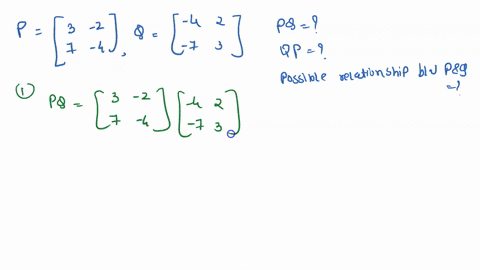 P = [ 3 -2
7 -4 ] , Q = [ -4 2
-7 3 ]
PQ = ?
QP = ?
Possible relationship b/w P&Q
= ?
① PQ = [ 3 -2
7 -4 ] [ -4 2
-7 3 ]